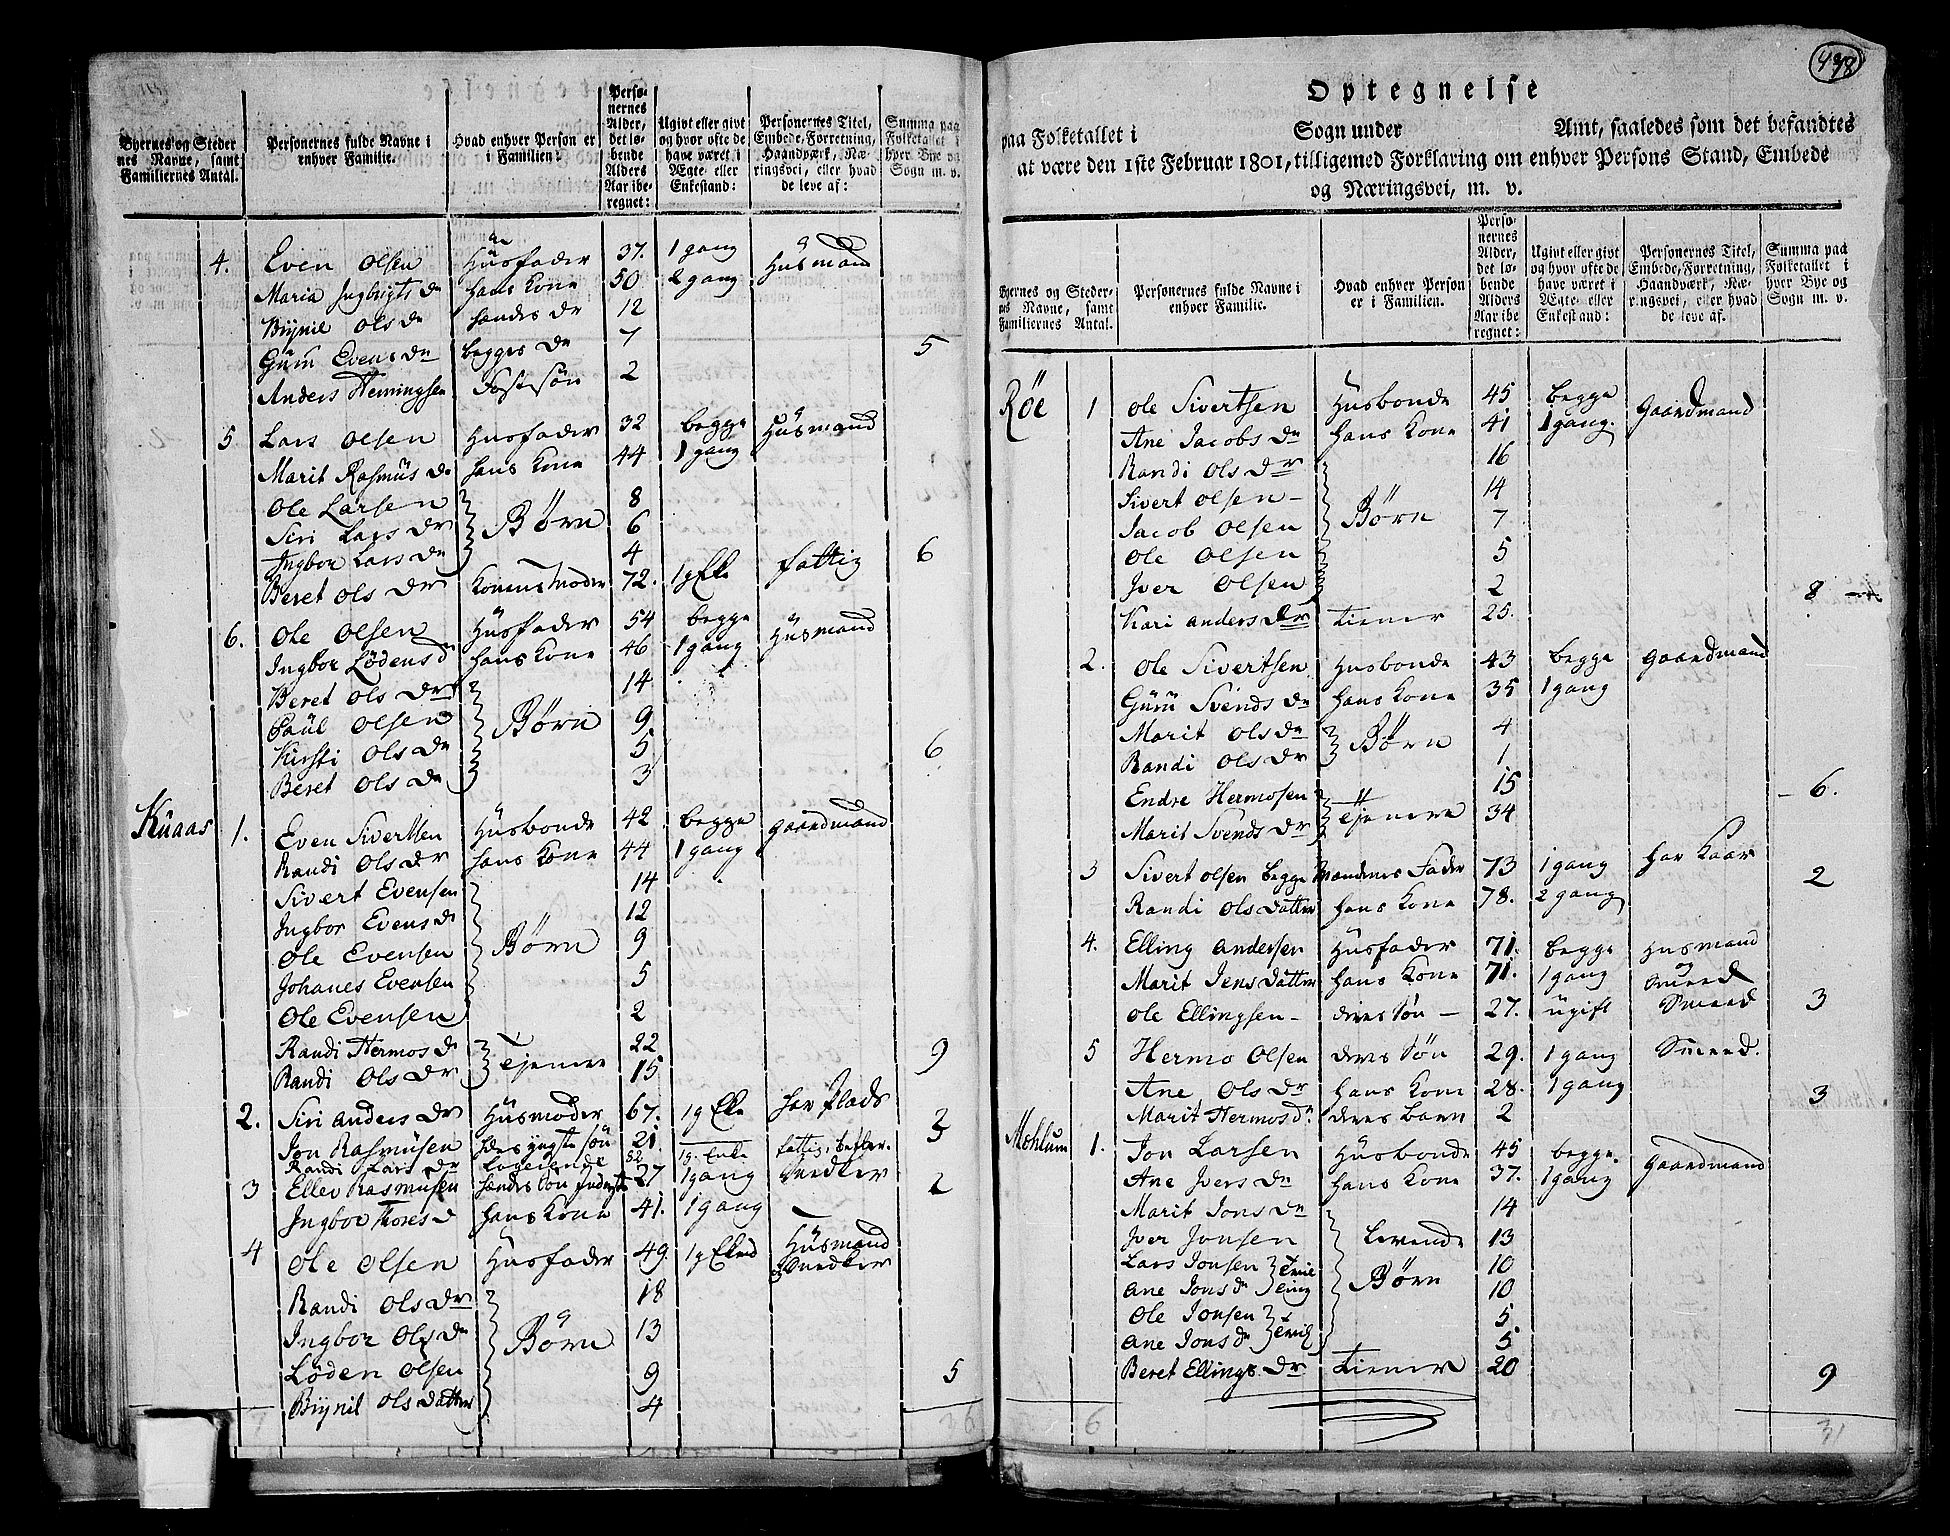 Byernes og Steder
nes Navne, samt
Familiernes Antal.
Personernes fulde Navne i
enhver Familie.
Hvad enhver Person er
i Familien:
Perso-
nernes
Alder,
det lø-
bende
Alders
Aar ibe-
regnet:
Ugivt eller givt
og hvor ofte de
have været i
Ægte- eller
Enkestand:
Personernes Titel,
Embede, Forretning,
Haandværk, Næ-
ringsvei, eller hvad
de leve af:
Summa paa
Folketallet i
hver Bye og
Sogn m. v.
4. Even Olsen Husfader 37. 1 gang Husmand
Maria Ingbrigts Dr hans Kone 50 2 gang
Brynil Ols Dr hendes Dr 12
Guru Evens Dr begges Dr 7 5
Anders Hemingsen Fostersøn 2
5 Lars Olsen Husfader 32 begge Husmand
Marit Rasmus Dr hans Kone 44 1 gang
Ole Larsen 8
Siri Lars Dr Børn 6
Ingbor Lars Dr 4 6
Beret Ols Dr Konens Moder 72. 1 g Eke fattig
6. Ole Olsen Husfader 54 begge Husmand
Ingbor Lødens Dr hans Kone 46 1 gang
Beret Ols Dr 14
Paul Olsen Børn 9
Kirsti Ols Dr 5 6
Beret Ols Dr 3
Kuaas 1. Even Sivertsen Husbonde 42 begge Gaardmand
Randi Ols Dr hans Kone 44 1 gang
Sivert Evensen 14
Ingbor Evens Dr 12
Ole Evensen Børn 9
Johanes Evensen 5
Ole Evensen 2
Randi Hermos Dr 22 9
Randi Ols Dr Tjenere 15
2. Siri Anders Dr Husmoder 67. 1 g Eke har Plads
Jon Rasmusen hdes yngste søn 21. 3
Randi Lars Dr Logerende 52 1 g. Enke fattig, betler
3 Ellev Rasmusen hendes Søn 27 1 gang Snedker 2
Ingbor Thores D hans Kone 41. 1 gang
4 Ole Olsen Husfader 49. 1 g Eked Husmand
Snedker
Randi Ols Dr 18
Ingbor Ols Dr Børn 13
Løden Olsen 9 5
Brynil Ols Datter 4
36
438
Optegnelse
paa Folketallet i Sogn under Amt, saaledes som det befandtes
at være den 1ste Februar 1801, tilligemed Forklaring om enhver Persons Stand, Embede
og Næringsvei, m. v.
Byernes og Steder-
nes Navne, samt
Familiernes Antal.
Personernes fulde Navne i
enhver Familie.
Hvad enhver Person
er i Familien.
Perso-
nernes
Alder,
det lø-
bende
Alders
Aar ibe-
regnet:
Ugivt eller givt
og hvor ofte de
have været i
Ægte- eller
Enkestand:
Personernes Titel,
Embede, Forretning,
Haandværk, Næ-
ringsvei, eller hvad
de leve af.
Summa paa
Folketallet i
hver Bye og
Sogn m. v.
Røe 1 Ole Sivertsen Husbonde 45 begge Gaardmand
Ane Jacobs Dr hans Kone 41 1 gang.
Randi Ols Dr 16
Sivert Olsen 14
Jacob Olsen Børn 7
Ole Olsen 5
Iver Olsen 2 8
Kari Anders Dr Tiener 25.
2. Ole Sivertsen Husbonde 43 begge Gaardmand
Guru Svends Dr hans Kone 35 1 gang
Marit Ols Dr Børn 4
Randi Ols Dr 1
Endre Hermosen 15 6.
Marit Svends Dr Tjenere 34
3 Sivert Olsen begge Mændenes Fader 73 1 gang har Kaar 2
Randi Ols Datter hans Kone 78. 2 gang
4. Elling Andersen Husfader 71. begge Husmand
Marit Jens Datter hans Kone 71. 1 gang Smeed
Ole Ellingsen deres Søn 27. ugift Smeed 3
5 Hermo Olsen deres Søn 29. 1 gang Smeed.
Ane Ols Dr hans Kone 28. 1 gang 3
Marit Hermos Dr deres Barn 2
Mæhlum 1. Jon Larsen Husbonde 45 begge Gaardmand
Ane Ivers Dr hans Kone 37. 1 gang
Marit Jons Dr 14
Iver Jonsen Levende 13
Lars Jonsen 10
Ane Jons Dr Børn 10
Ole Jonsen 5
Ane Jons Dr 5
Beret Ellings Dr Tiener 20 9
6 31